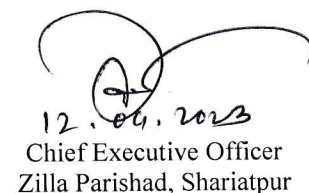 12.04.2023
Chief Executive Officer
Zilla Parishad, Shariatpur